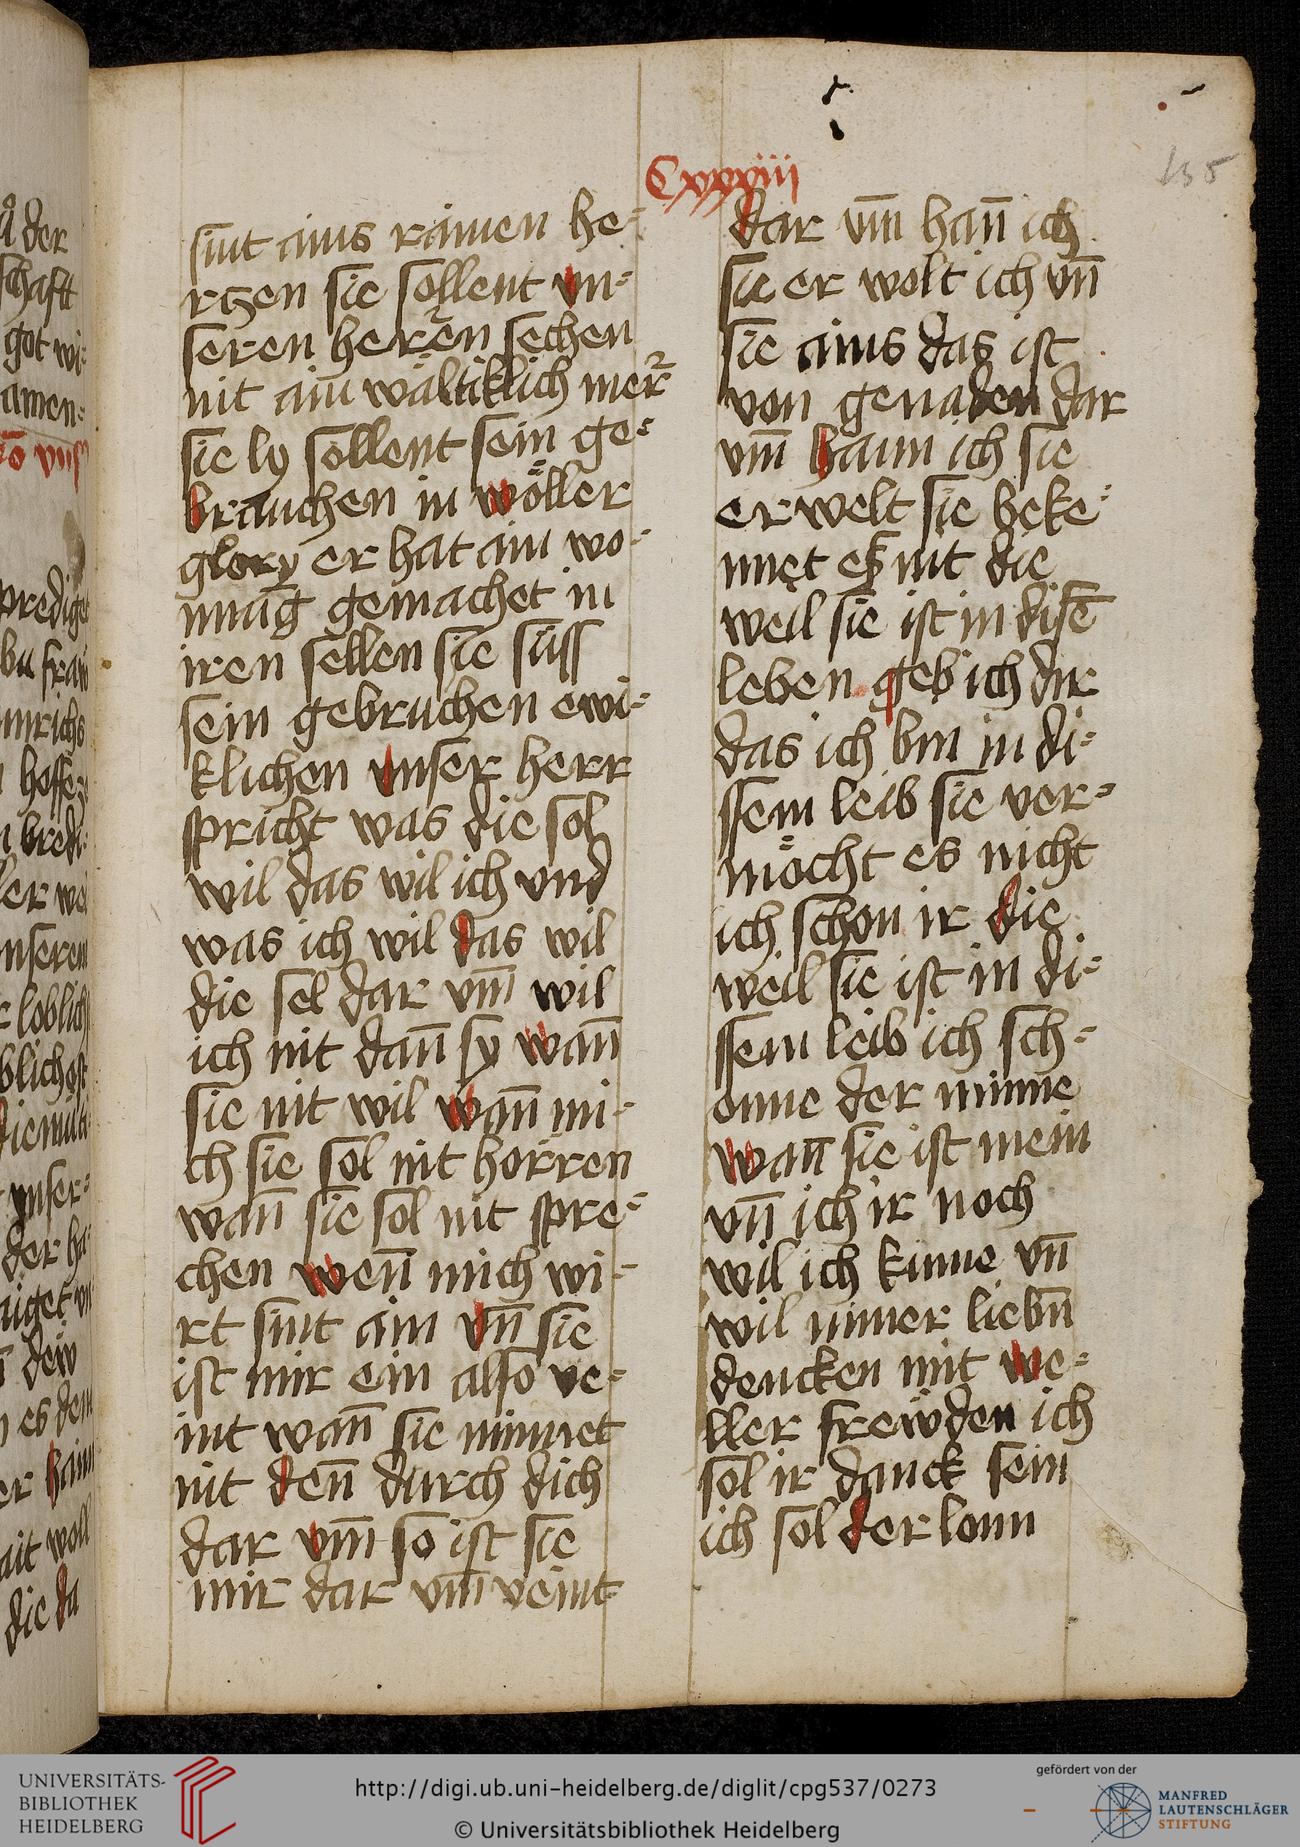 Cxxxiiii
135
sint ains rainen he-
rtzen sie sollent vn-
seren herren sechen
nit ain wältiklich mer
sie ly söllent sein ge-
brauchen in wöller
glory er hat ain wo-
nung gemachet in
iren sellen sie süss
sein gebruchen ewi-
klichen vnser herr
spricht was die sol
wil das wil ich vnd
was ich wil das wil
die sel dar vm̄ wil
ich nit dan̄ sy wan̄
sie nit wil wan̄ mi-
ch sie sol nit hörren
wan̄ sie sol nit spre-
chen wen̄ mich wi-
rt sint ain vn̄ sie
ist mir ein also ve-
int wan̄ sie minnet
nit den̄ durch dich
dar vm̄ so ist sie
mir dar vm̄ veint
dar vm̄ han̄ ich
sie er wolt ich vn̄
sie ains das ist
von genaden dar
vm̄ hann ich sie
er welt sie beke-
nnet eß nit die
weil sie ist in disē
leben geb ich dir
das ich bin in di-
ssem leib sie ver-
möcht es nicht
ich schon ir die
weil sie ist in di-
ssem leib ich sch-
onne der minne
wan̄ sie ist mein
vn̄ ich ir noch
wil ich kinne vn̄
wil nimer liebn̄
dencken mit we-
ller freẅden ich
sol ir danck sein
ich sol der lonn
ů der
schafft
got wi-
amen-
prediget
hoffe
bredi-
nseren
loblich
vnser-
der ha-
dew
es dem
er hain
ait woll
die da
UNIVERSITÄTS-
BIBLIOTHEK
HEIDELBERG
http://digi.ub.uni-heidelberg.de/diglit/cpg537/0273
© Universitätsbibliothek Heidelberg
gefördert von der
MANFRED
LAUTENSCHLÄGER
STIFTUNG